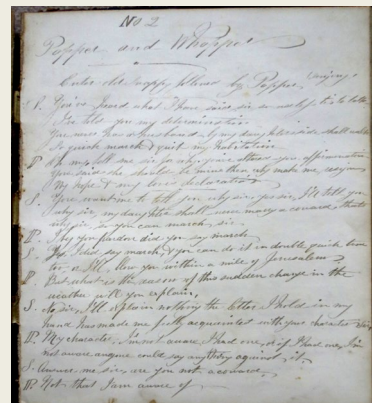 No 2
Popper and Whopper
Enter Old Snappy followed by Popper,
S. You've heard what I have said sir, so
I've told you my determination
You never has a husband by my daughter's side shall
So quick march & quit my habitation.
P. Oh my tell me sir for why you've altered your affirmation
You said she should be mine then why make me resign
My hope & my loves declaration
S. You want me to tell you why sir poo sir, I've told you
why sir, my daughter shall never marry a coward, that's
why sir, so you can march, sir.
P. I beg your pardon did you say march
S. Yes I did say march, & you can do it in double quick time
too, or I'll you within a mile of Jerusalem
P. But what is the reason of this sudden change in the
weather will you explain,
S. No sir, I'll explain nothing the letter I hold in my
hand has made me fully acquainted with your character
P. My character, I'm not aware I had one, or if I had one, I'm
not aware anyone could say anything against it,
S. Answer me sir, are you not a coward,
P. Not that I am aware of